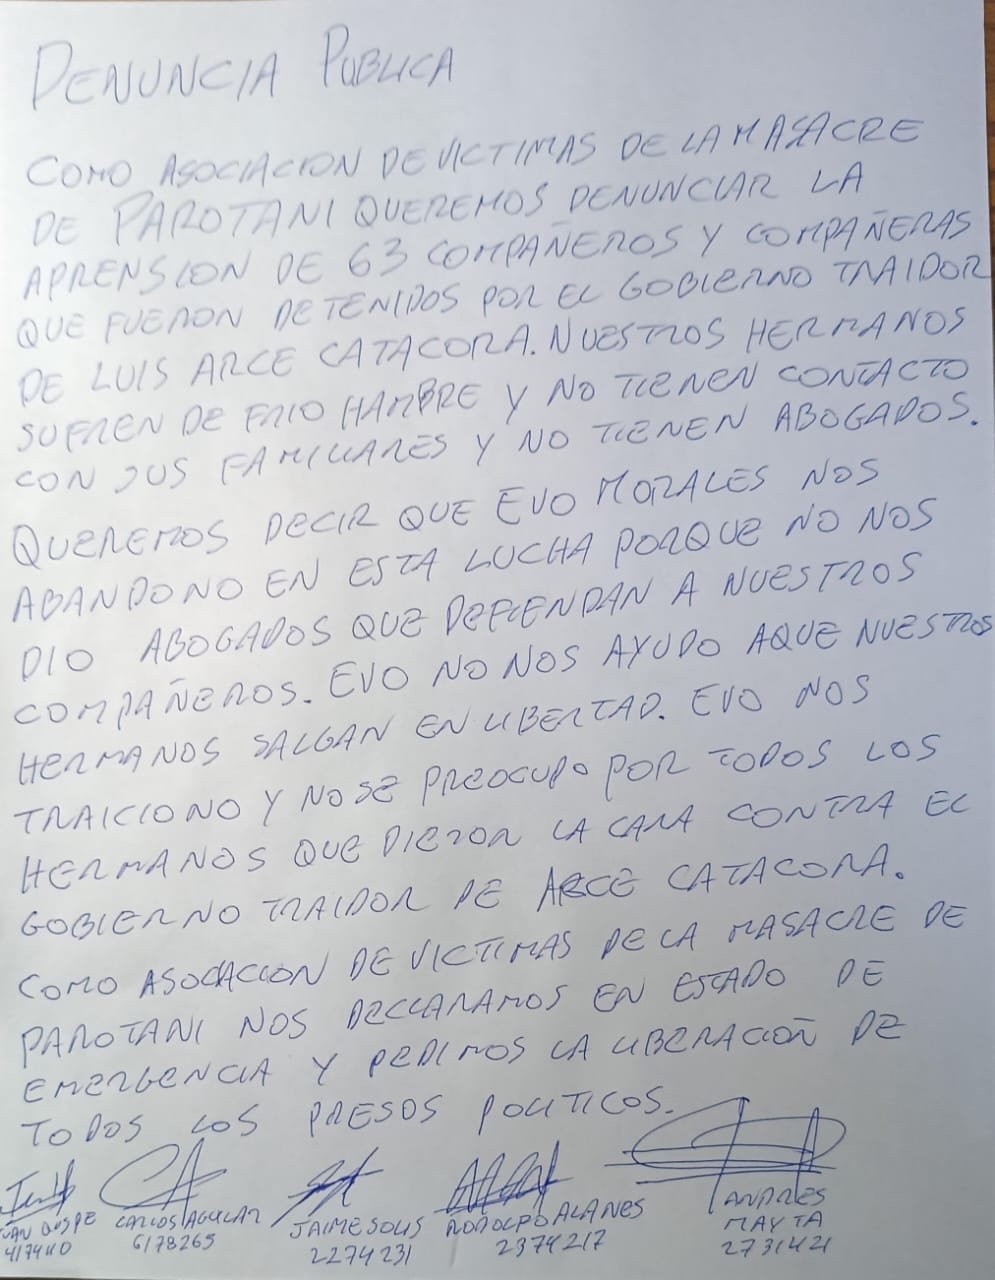 DENUNCIA PUBLICA
COMO ASOCIACION DE VICTIMAS DE LA MASACRE
DE PAROTANI QUEREMOS DENUNCIAR LA
APRENSION DE 63 COMPAÑEROS Y COMPAÑERAS
QUE FUERON DETENIDOS POR EL GOBIERNO TRAIDOR
DE LUIS ARCE CATACORA. NUESTROS HERMANOS
SUFREN DE FRIO HAMBRE Y NO TIENEN CONTACTO
CON SUS FAMILIARES Y NO TIENEN ABOGADOS.
QUEREMOS DECIR QUE EVO MORALES NOS
ABANDONO EN ESTA LUCHA PORQUE NO NOS
DIO ABOGADOS QUE DEFIENDAN A NUESTROS
COMPAÑEROS. EVO NO NOS AYUDO AQUE NUESTROS
HERMANOS SALGAN EN LIBERTAD. EVO NOS
TRAICIONO Y NO SE PREOCUPO POR TODOS LOS
HERMANOS QUE DIERON LA CARA CONTRA EL
GOBIERNO TRAIDOR DE ARCE CATACORA.
COMO ASOCIACION DE VICTIMAS DE LA MASACRE DE
PAROTANI NOS DECLARAMOS EN ESTADO DE
EMERGENCIA Y PEDIMOS LA LIBERACIÓN DE
TODOS LOS PRESOS POLITICOS.
CARLOS AGUILAR JAIME SOLIS RODOLFO ALANES ANDRES
MAYTA
6178265 2274231 2374217 2731421